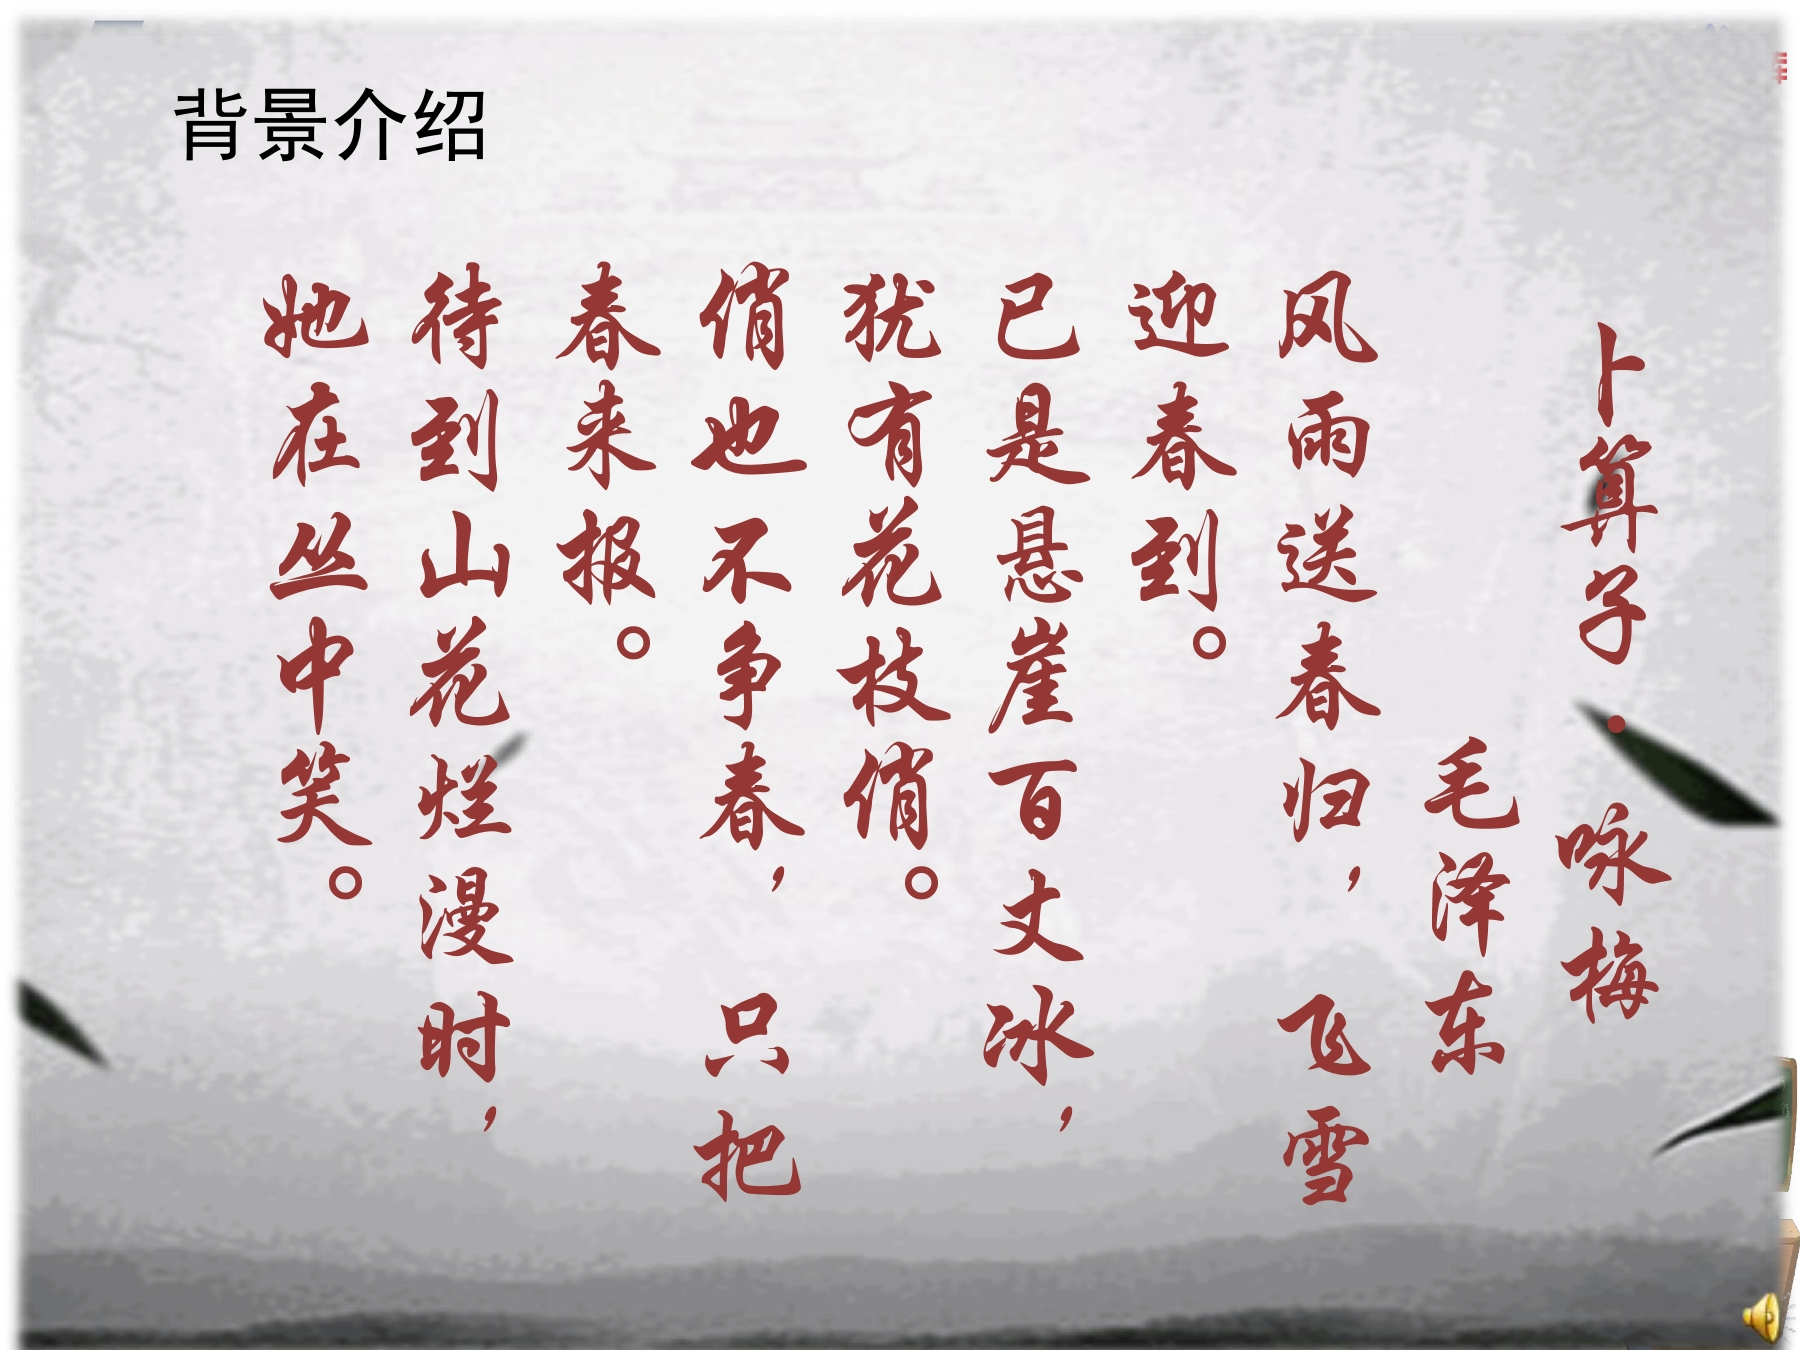 背景介绍
卜算子·咏梅
毛泽东
风雨送春归，飞雪
迎春到。
已是悬崖百丈冰，
犹有花枝俏。
俏也不争春，只把
春来报。
待到山花烂漫时，
她在丛中笑。